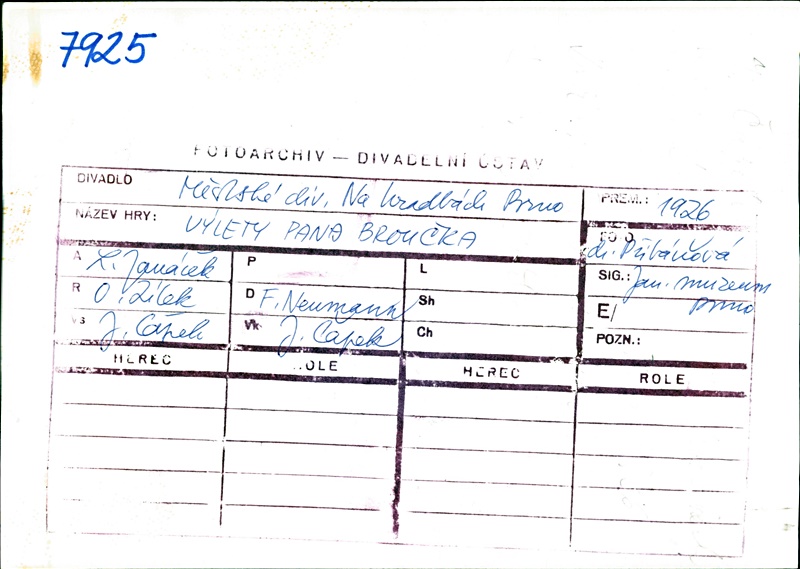 7925
FOTOARCHIV — DIVADELNÍ ÚSTAV
DIVADLO Městské div. Na hradbách Brno
PREM.: 1926
NÁZEV HRY: VÝLETY PANA BROUČKA
FOTO dr. Přibáňová
A L. Janáček P L
SIG.: Jan. muzeum Brno
R O. Zítek D F. Neumann Sh
E/
VS J. Čapek Vk J. Čapek Ch
POZN.:
HEREC ROLE HEREC ROLE